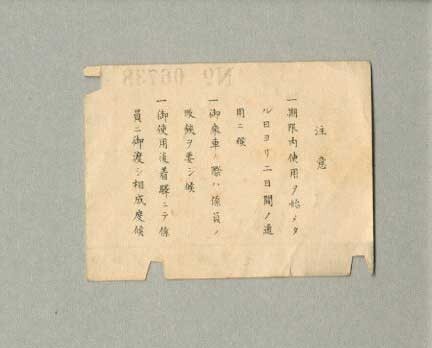 注意
一期限内使用ヲ始メタ
ル日ヨリ二日間ノ通
用ニ候
一御乗車ノ際ハ係員ノ
改鋏ヲ要シ候
一御使用後着驛ニテ係
員ニ御渡シ相成度候
No 06738